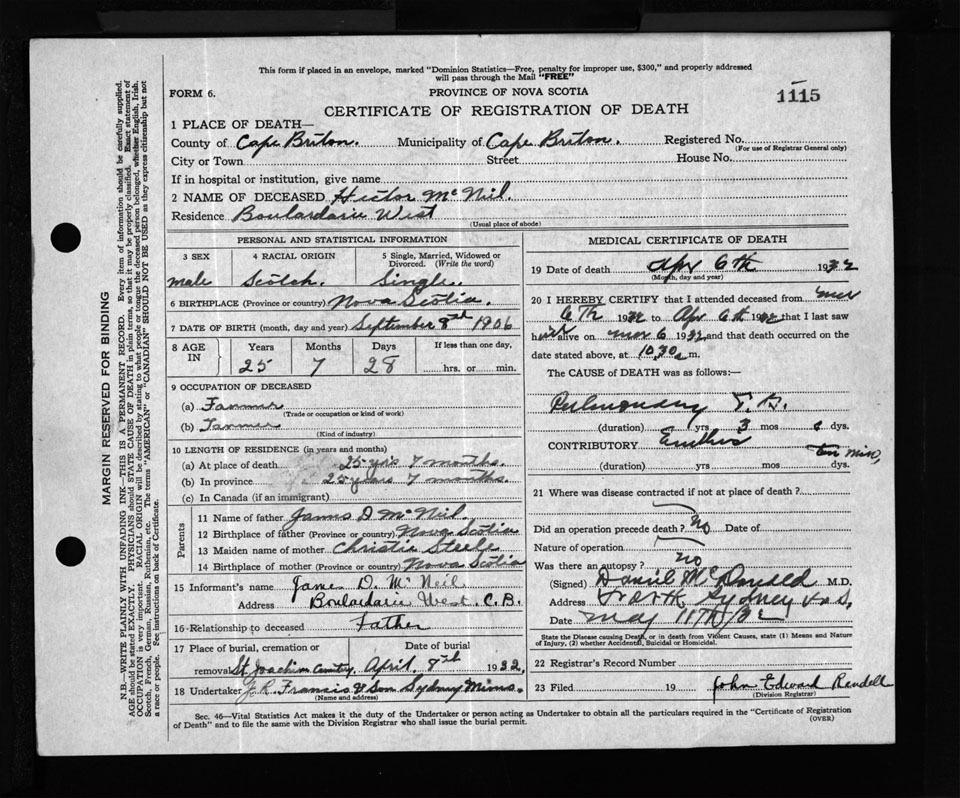 This form if placed in an envelope, marked "Dominion Statistics—Free, penalty for improper use, $300," and properly addressed
will pass through the Mail "FREE"
FORM 6.
PROVINCE OF NOVA SCOTIA
1115
CERTIFICATE OF REGISTRATION OF DEATH
1 PLACE OF DEATH—
County of Cape Briton. Municipality of Cape Briton. Registered No.
(For use of Registrar General only)
City or Town Street House No.
If in hospital or institution, give name
2 NAME OF DECEASED Hector McNeil.
Residence Boulardarie West
(Usual place of abode)
PERSONAL AND STATISTICAL INFORMATION
3 SEX 4 RACIAL ORIGIN 5 Single, Married, Widowed or Divorced. (Write the word)
male Scotch. Single.
6 BIRTHPLACE (Province or country) Nova Scotia.
7 DATE OF BIRTH (month, day and year) September 8th 1906
8 AGE IN Years Months Days If less than one day,
25 7 28 hrs. or min.
9 OCCUPATION OF DECEASED
(a) Farmer
(Trade or occupation or kind of work)
(b) Farmer
(Kind of industry)
10 LENGTH OF RESIDENCE (in years and months)
(a) At place of death 25 yrs 7 months.
(b) In province 25 years 7 months.
(c) In Canada (if an immigrant)
Parents
11 Name of father James D McNeil.
12 Birthplace of father (Province or country) Nova Scotia
13 Maiden name of mother Christie Steele
14 Birthplace of mother (Province or country) Nova Scotia
15 Informant's name James D. McNeil
Address Boulardarie West. C.B.
16 Relationship to deceased Father
17 Place of burial, cremation or Date of burial
removal St. Joachim April 8th 1932,
18 Undertaker J.R. Francis & Son Sydney Mines.
(Name and address)
MEDICAL CERTIFICATE OF DEATH
19 Date of death Apr 6th 1932
(Month, day and year)
20 I HEREBY CERTIFY that I attended deceased from
6th 1932 to Apr 6th 1932 that I last saw
h alive on 6 1932, and that death occurred on the
date stated above, at 10.30 a m.
The CAUSE of DEATH was as follows:
Pulmonary T.B.
(duration) yrs 3 mos dys.
CONTRIBUTORY
(duration) yrs mos. Ten min, dys.
21 Where was disease contracted if not at place of death?
Did an operation precede death? No Date of
Nature of operation
Was there an autopsy? no
(Signed) Daniel McDonald M.D.
Address North Sydney N.S.
Date May 11th/32
State the Disease causing Death, or in death from Violent Causes, state (1) Means and Nature
of Injury, (2) whether Accidental, Suicidal or Homicidal.
22 Registrar's Record Number
23 Filed 19 John Edward Rendell
(Division Registrar)
Sec. 46—Vital Statistics Act makes it the duty of the Undertaker or person acting as Undertaker to obtain all the particulars required in the "Certificate of Registration
of Death" and to file the same with the Division Registrar who shall issue the burial permit.
(OVER)
MARGIN RESERVED FOR BINDING
N.B.—WRITE PLAINLY WITH UNFADING INK—THIS IS A PERMANENT RECORD. Every item of information should be carefully supplied.
AGE should be stated EXACTLY. PHYSICIANS should STATE CAUSE OF DEATH in plain terms, so that it may be properly classified. Exact statement of
OCCUPATION is very important. RACIAL ORIGIN will be described by stating to what people or tongue the deceased person belonged, whether English, Irish,
Scotch, French, German, Russian, Ruthenian, etc. The terms "AMERICAN" or "CANADIAN" SHOULD NOT BE USED as they express citizenship but not
a race or people. See instructions on back of Certificate.